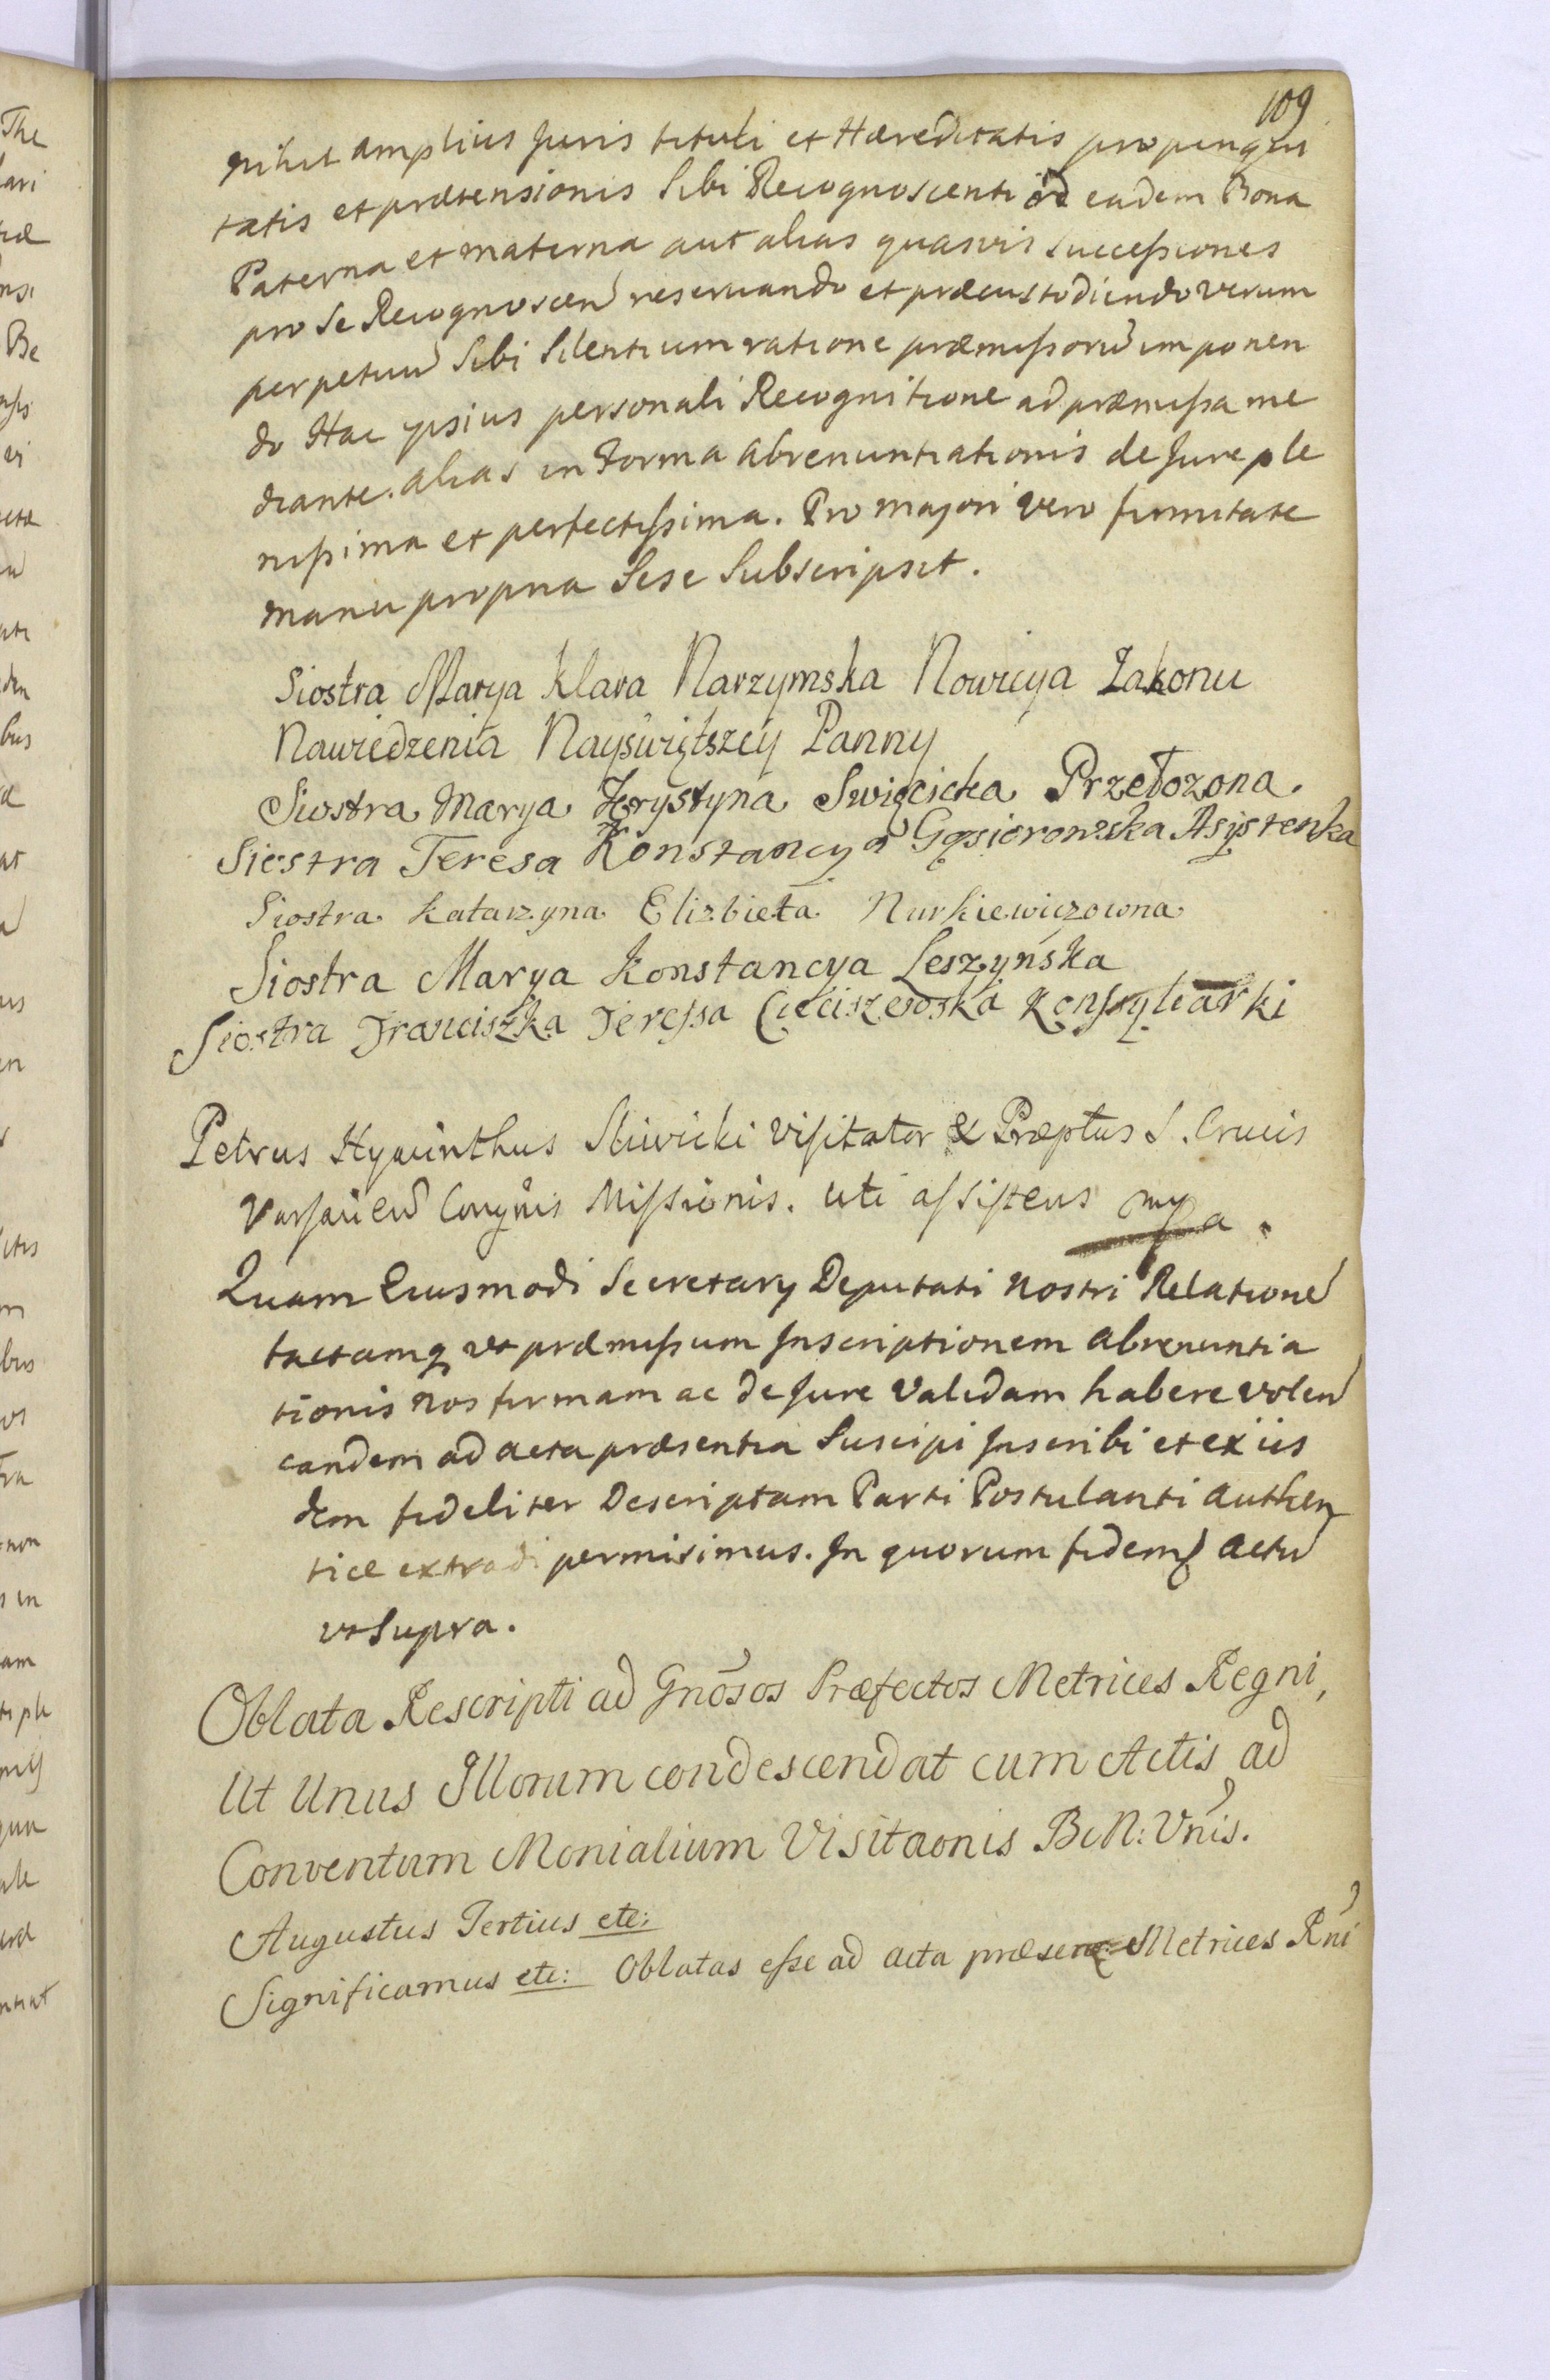 109
nihil amplius Juris tituli et Hæreditatis propinqui
tatis et prætensionis Sibi Recognoscenti ad eadem Bona
Paterna et materna aut alias quasvis Successiones
pro Se Recognoscen reservando et præcustodiendo verum
perpetuu Sibi Silentium ratione præmissoru imponen
do Hac ipsius personali Recognitione ad præmissa me
diante. alias in Forma abrenuntiationis de Jure ple
nissima et perfectissima. Pro majori vero firmitate
manu propria Sese Subscripsit.
Siostra Marya Klara Narzymska Nowicya Zakonu
Nawiedzenia Nayświętszey Panny
Siostra Marya Krystyna Swięcicka Przełozona.
Siostra Teresa Konstancya Gąsiorowska Asystenka
Siostra Katarzyna Elizbieta Nurkiewiczowna
Siostra Marya Konstancya Leszyńska
Siostra Franciszka Teressa Cieciszewska Konsyliarki
Petrus Hyacinthus Sliwicki Visitator & Præptus S. Crucis
Varsavien Congnis Missionis. uti assistens mpa.
Quam Eiusmodi Secretarij Deputati nostri Relatione
factamq ut præmissum Inscriptionem abrenuntia
tionis nos firmam ac de Jure validam habere volen
eandem ad acta præsentia Suscipi Inscribi et ex iis
dem fideliter Descriptam Parti Postulanti authen
tice extradi permisimus. In quorum fidem Actu
ut Supra.
Oblata Rescripti ad Gnosos Præfectos Metrices Regni,
Ut Unus Illorum condescendat cum Actis ad
Conventum Monialium Visitaonis BMV: Vnis.
Augustus Tertius etc:
Significamus etc: Oblatas esse ad acta præsen: Metrices Rni